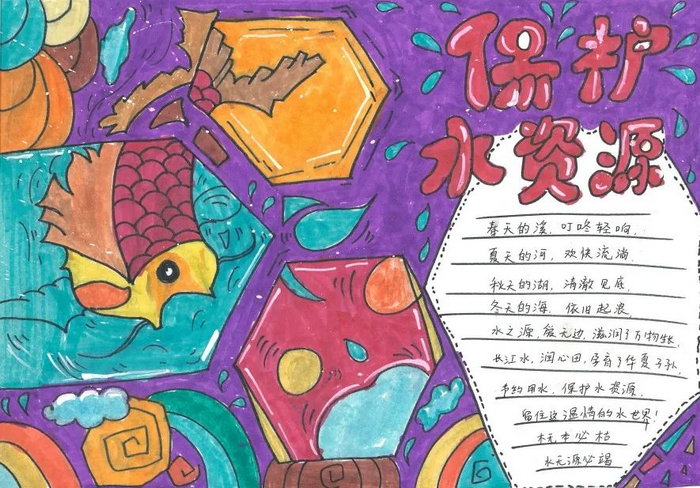 保护
水资源
春天的溪，叮咚轻响，
夏天的河，欢快流淌，
秋天的湖，清澈见底，
冬天的海，依旧起浪。
水之源，爱无边，滋润了万物生。
长江水，润心田，孕育了华夏子孙。
节约用水，保护水资源，
留住这温情的水世界！
木无本必枯
水无源必竭